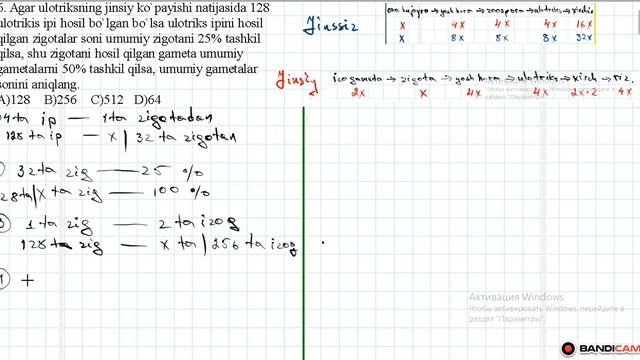 5. Agar ulotriksning jinsiy ko`payishi natijasida 128
ulotriks ipi hosil bo`lgan bo`lsa ulotriks ipini hosil
qilgan zigotalar soni umumiy zigotani 25% tashkil
qilsa, shu zigotani hosil qilgan gameta umumiy
gametalarni 50% tashkil qilsa, umumiy gametalar
sonini aniqlang.
A)128 B)256 C)512 D)64
4 ta ip — 1 ta zigotadan
128 ta ip — x | 32 ta zigotan
32 ta zig — 25 %
128 ta | x ta zig — 100 %
1 ta zig — 2 ta izog
128 ta zig — x ta | 256 ta izog
+
Jinssiz
x 4x 4x 4x 16x
x 8x 8x 8x 32x
Jinsiy
izogameta → zigota → yosh h-ra → ulotriks → xich → riz.
2x x 4x 4x 2x·2 4x
Активация Windows
Чтобы активировать Windows, перейдите в
раздел "Параметры".
BANDICAM